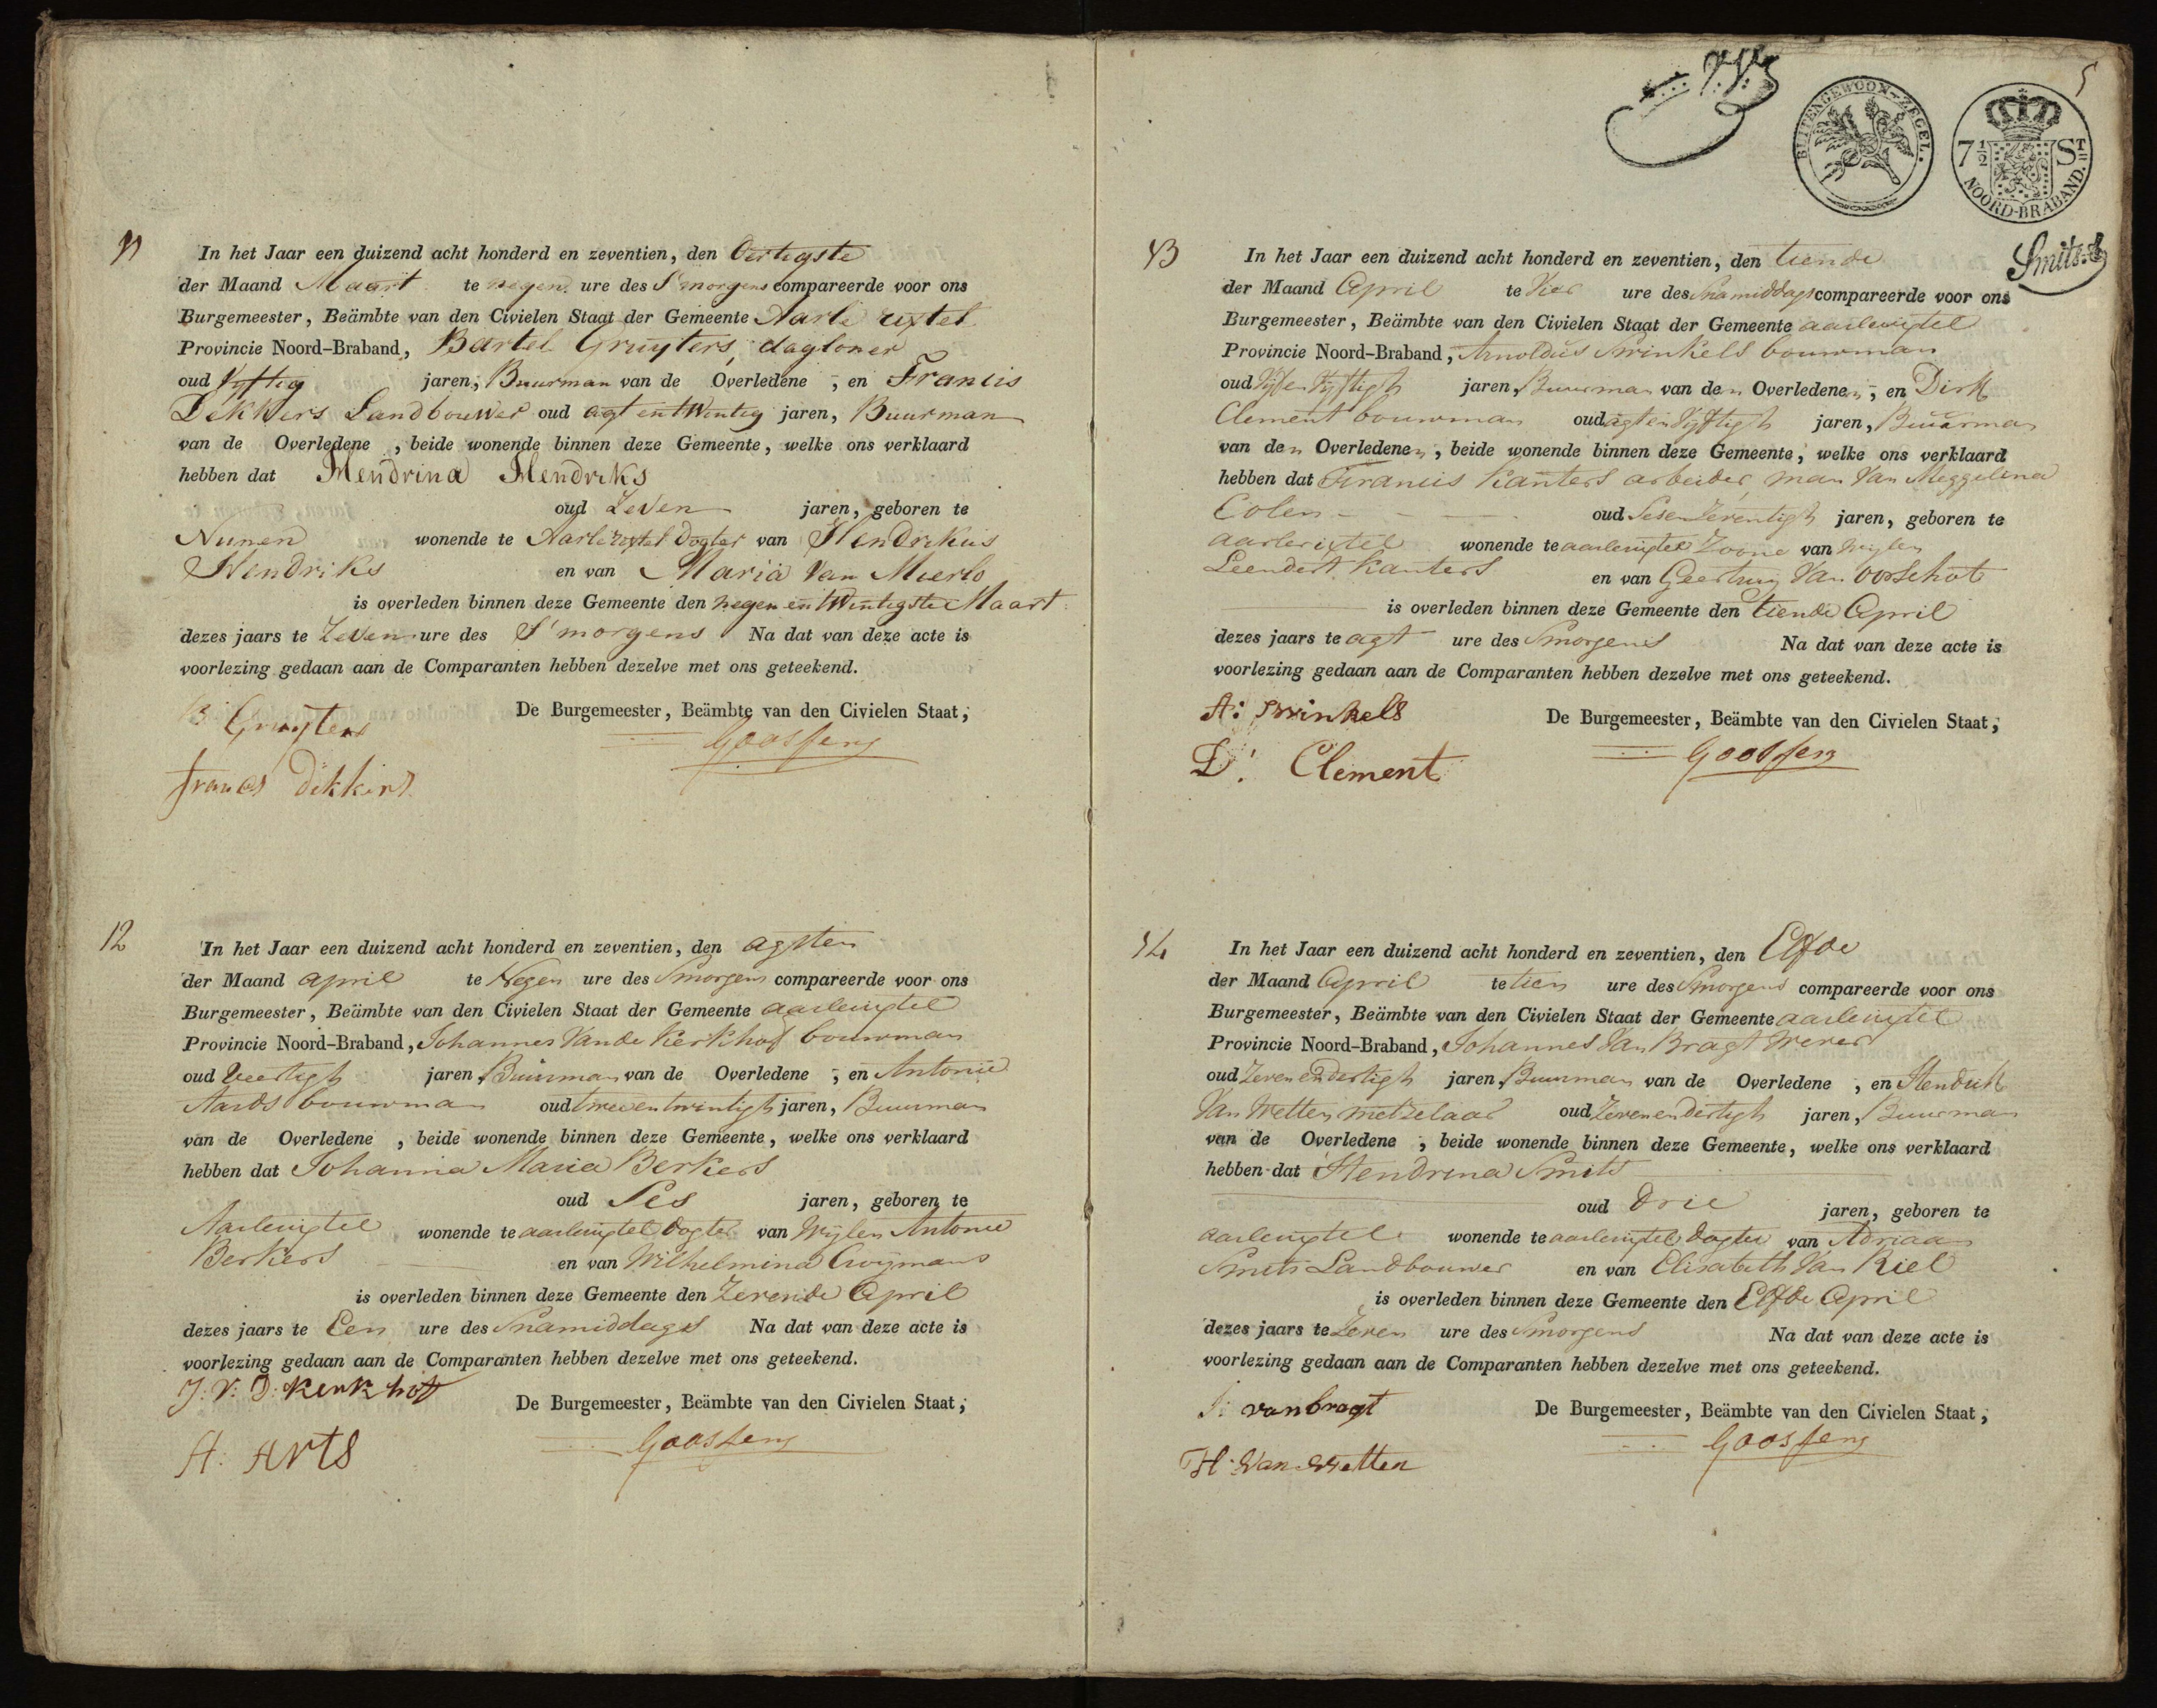 11
In het Jaar een duizend acht honderd en zeventien, den Dertigste
der Maand Maart te negen ure des S'morgens compareerde voor ons
Burgemeester, Beämbte van den Civielen Staat der Gemeente Aarle rixtel
Provincie Noord-Braband, Bartel Gruyters, dagloner
oud Vyftig jaren, Buurman van de Overledene, en Francis
Dekkers Landbouwer oud agt en twentig jaren, Buurman
van de Overledene, beide wonende binnen deze Gemeente, welke ons verklaard
hebben dat Hendrina Hendriks
oud Zeven jaren, geboren te
Nunen wonende te Aarle rixtel Dogter van Hendrikus
Hendriks en van Maria Van Mierlo
is overleden binnen deze Gemeente den negen en twintigste Maart
dezes jaars te Zeven ure des S'morgens Na dat van deze acte is
voorlezing gedaan aan de Comparanten hebben dezelve met ons geteekend.
B Gruijters
De Burgemeester, Beämbte van den Civielen Staat,
Goossens
francs dekkers
12
In het Jaar een duizend acht honderd en zeventien, den agsten
der Maand april te Negen ure des Smorgens compareerde voor ons
Burgemeester, Beämbte van den Civielen Staat der Gemeente aarlerixtel
Provincie Noord-Braband, Johannes Vande Kerkhof bouwman
oud Veertigh jaren, Buurman van de Overledene, en Antonie
Aards bouwman oud tweeentwintigh jaren, Buurman
van de Overledene, beide wonende binnen deze Gemeente, welke ons verklaard
hebben dat Johanna Maria Berkers
oud Ses jaren, geboren te
Aarlerixtel wonende te aarlerixtel Dogter van Wijlen Antonie
Berkers en van Wilhelmina Cruijmans
is overleden binnen deze Gemeente den Zevende April
dezes jaars te Een ure des Snamiddags Na dat van deze acte is
voorlezing gedaan aan de Comparanten hebben dezelve met ons geteekend.
J: V: D: Kerkhof
De Burgemeester, Beämbte van den Civielen Staat,
Goossens
A: Arts
5
BUITENGEWOON-ZEGEL.
7½ STs
NOORD-BRABAND.
Smits
13
In het Jaar een duizend acht honderd en zeventien, den tiende
der Maand April te Vier ure des Snamiddags compareerde voor ons
Burgemeester, Beämbte van den Civielen Staat der Gemeente aarlerixtel
Provincie Noord-Braband, Arnoldus Swinkels bouwman
oud Vijfen Vijftigh jaren, Buurman van den Overledenen, en Dirk
Clement bouwman oud agten Vijftigh jaren, Buurman
van den Overledenen, beide wonende binnen deze Gemeente, welke ons verklaard
hebben dat Francis Kanters arbeider, man Van Meggelina
Colen oud Sesen Zeventigh jaren, geboren te
aarlerixtel wonende te aarlerixtel Zoone van Wijlen
Leendert Kanters en van Geertruy Van Oorschot
is overleden binnen deze Gemeente den tiende April
dezes jaars te agt ure des Smorgens Na dat van deze acte is
voorlezing gedaan aan de Comparanten hebben dezelve met ons geteekend.
A: Swinkels
De Burgemeester, Beämbte van den Civielen Staat,
Goossens
D: Clement
14
In het Jaar een duizend acht honderd en zeventien, den Elfde
der Maand April te tien ure des Smorgens compareerde voor ons
Burgemeester, Beämbte van den Civielen Staat der Gemeente aarlerixtel
Provincie Noord-Braband, Johannes Van Bragt Wever
oud Zevenendertigh jaren, Buurman van de Overledene, en Hendrik
Van Wetten metzelaar oud Zevenendertigh jaren, Buurman
van de Overledene, beide wonende binnen deze Gemeente, welke ons verklaard
hebben dat Hendrina Smits
oud Drie jaren, geboren te
aarlerixtel wonende te aarlerixtel Dogter van Adriaan
Smits Landbouwer en van Elisabeth Van Riel
is overleden binnen deze Gemeente den Elfde April
dezes jaars te Zeven ure des Smorgens Na dat van deze acte is
voorlezing gedaan aan de Comparanten hebben dezelve met ons geteekend.
J: van bragt
De Burgemeester, Beämbte van den Civielen Staat,
Goossens
H: Van Wetten